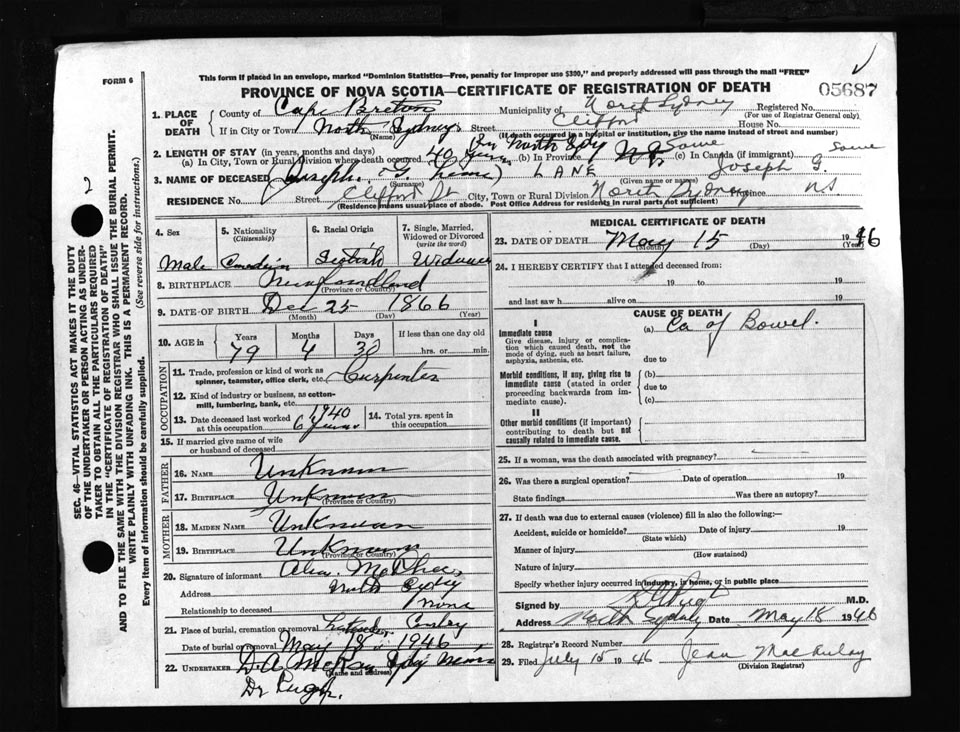 This form if placed in an envelope, marked "Dominion Statistics—Free, penalty for improper use $300," and properly addressed will pass through the mail "FREE"
FORM 6
PROVINCE OF NOVA SCOTIA—CERTIFICATE OF REGISTRATION OF DEATH
05687
1. PLACE OF DEATH
County of Cape Breton
Municipality of North Sydney
Registered No.
(For use of Registrar General only)
If in City or Town North Sydney (Name) Street Clifford House No.
(If death occurred in a hospital or institution, give the name instead of street and number)
2. LENGTH OF STAY (in years, months and days) In North Sydney
(a) In City, Town or Rural Division where death occurred 40 years (b) In Province N.S. Same (c) In Canada (if immigrant) Same
3. NAME OF DECEASED Joseph G. LANE Joseph G.
(Surname) (Given name or names)
RESIDENCE No. Street Clifford St City, Town or Rural Division North Sydney Province N.S.
(Residence means usual place of abode. Post Office Address for residents in rural parts not sufficient)
4. Sex Male
5. Nationality (Citizenship) Canadian
6. Racial Origin Scotish
7. Single, Married, Widowed or Divorced (write the word) Widower
8. BIRTHPLACE Newfoundland
(Province or Country)
9. DATE OF BIRTH Dec 25 1866
(Month) (Day) (Year)
10. AGE in Years 79 Months 4 Days 30 If less than one day old
hrs. or min.
OCCUPATION
11. Trade, profession or kind of work as spinner, teamster, office clerk, etc. Carpenter
12. Kind of industry or business, as cotton-mill, lumbering, bank, etc.
13. Date deceased last worked at this occupation 1940 6 years
14. Total yrs. spent in this occupation
15. If married give name of wife or husband of deceased
FATHER
16. NAME Unknown
17. BIRTHPLACE Unknown
(Province or Country)
MOTHER
18. MAIDEN NAME Unknown
19. BIRTHPLACE Unknown
(Province or Country)
20. Signature of informant Alex. McPhee
Address North Sydney
Relationship to deceased None
21. Place of burial, cremation or removal
Date of burial or removal May 18 1946
22. UNDERTAKER D. A. McKay Sydney Mines
(Name and address)
Dr Pugh.
MEDICAL CERTIFICATE OF DEATH
23. DATE OF DEATH May 15 1946
(Month) (Day) (Year)
24. I HEREBY CERTIFY that I attended deceased from:
19 to 19
and last saw h alive on 19
CAUSE OF DEATH
I
Immediate cause
Give disease, injury or complication which caused death, not the mode of dying, such as heart failure, asphyxia, asthenia, etc.
(a) Ca of Bowel.
due to
Morbid conditions, if any, giving rise to immediate cause (stated in order proceeding backwards from immediate cause).
(b)
due to
(c)
II
Other morbid conditions (if important) contributing to death but not causally related to immediate cause.
25. If a woman, was the death associated with pregnancy?
26. Was there a surgical operation? Date of operation 19
State findings Was there an autopsy?
27. If death was due to external causes (violence) fill in also the following:—
Accident, suicide or homicide? Date of injury 19
(State which)
Manner of injury
(How sustained)
Nature of injury
Specify whether injury occurred in industry, in home, or in public place
Signed by Pugh M.D.
Address North Sydney Date May 18 1946
28. Registrar's Record Number
29. Filed July 15 1946 Jean MacAulay
(Division Registrar)
2
SEC. 46—VITAL STATISTICS ACT MAKES IT THE DUTY
OF THE UNDERTAKER OR PERSON ACTING AS UNDER-
TAKER TO OBTAIN ALL THE PARTICULARS REQUIRED
IN THE "CERTIFICATE OF REGISTRATION OF DEATH"
AND TO FILE THE SAME WITH THE DIVISION REGISTRAR WHO SHALL ISSUE THE BURIAL PERMIT.
WRITE PLAINLY WITH UNFADING INK. THIS IS A PERMANENT RECORD.
Every item of information should be carefully supplied. (See reverse side for instructions.)